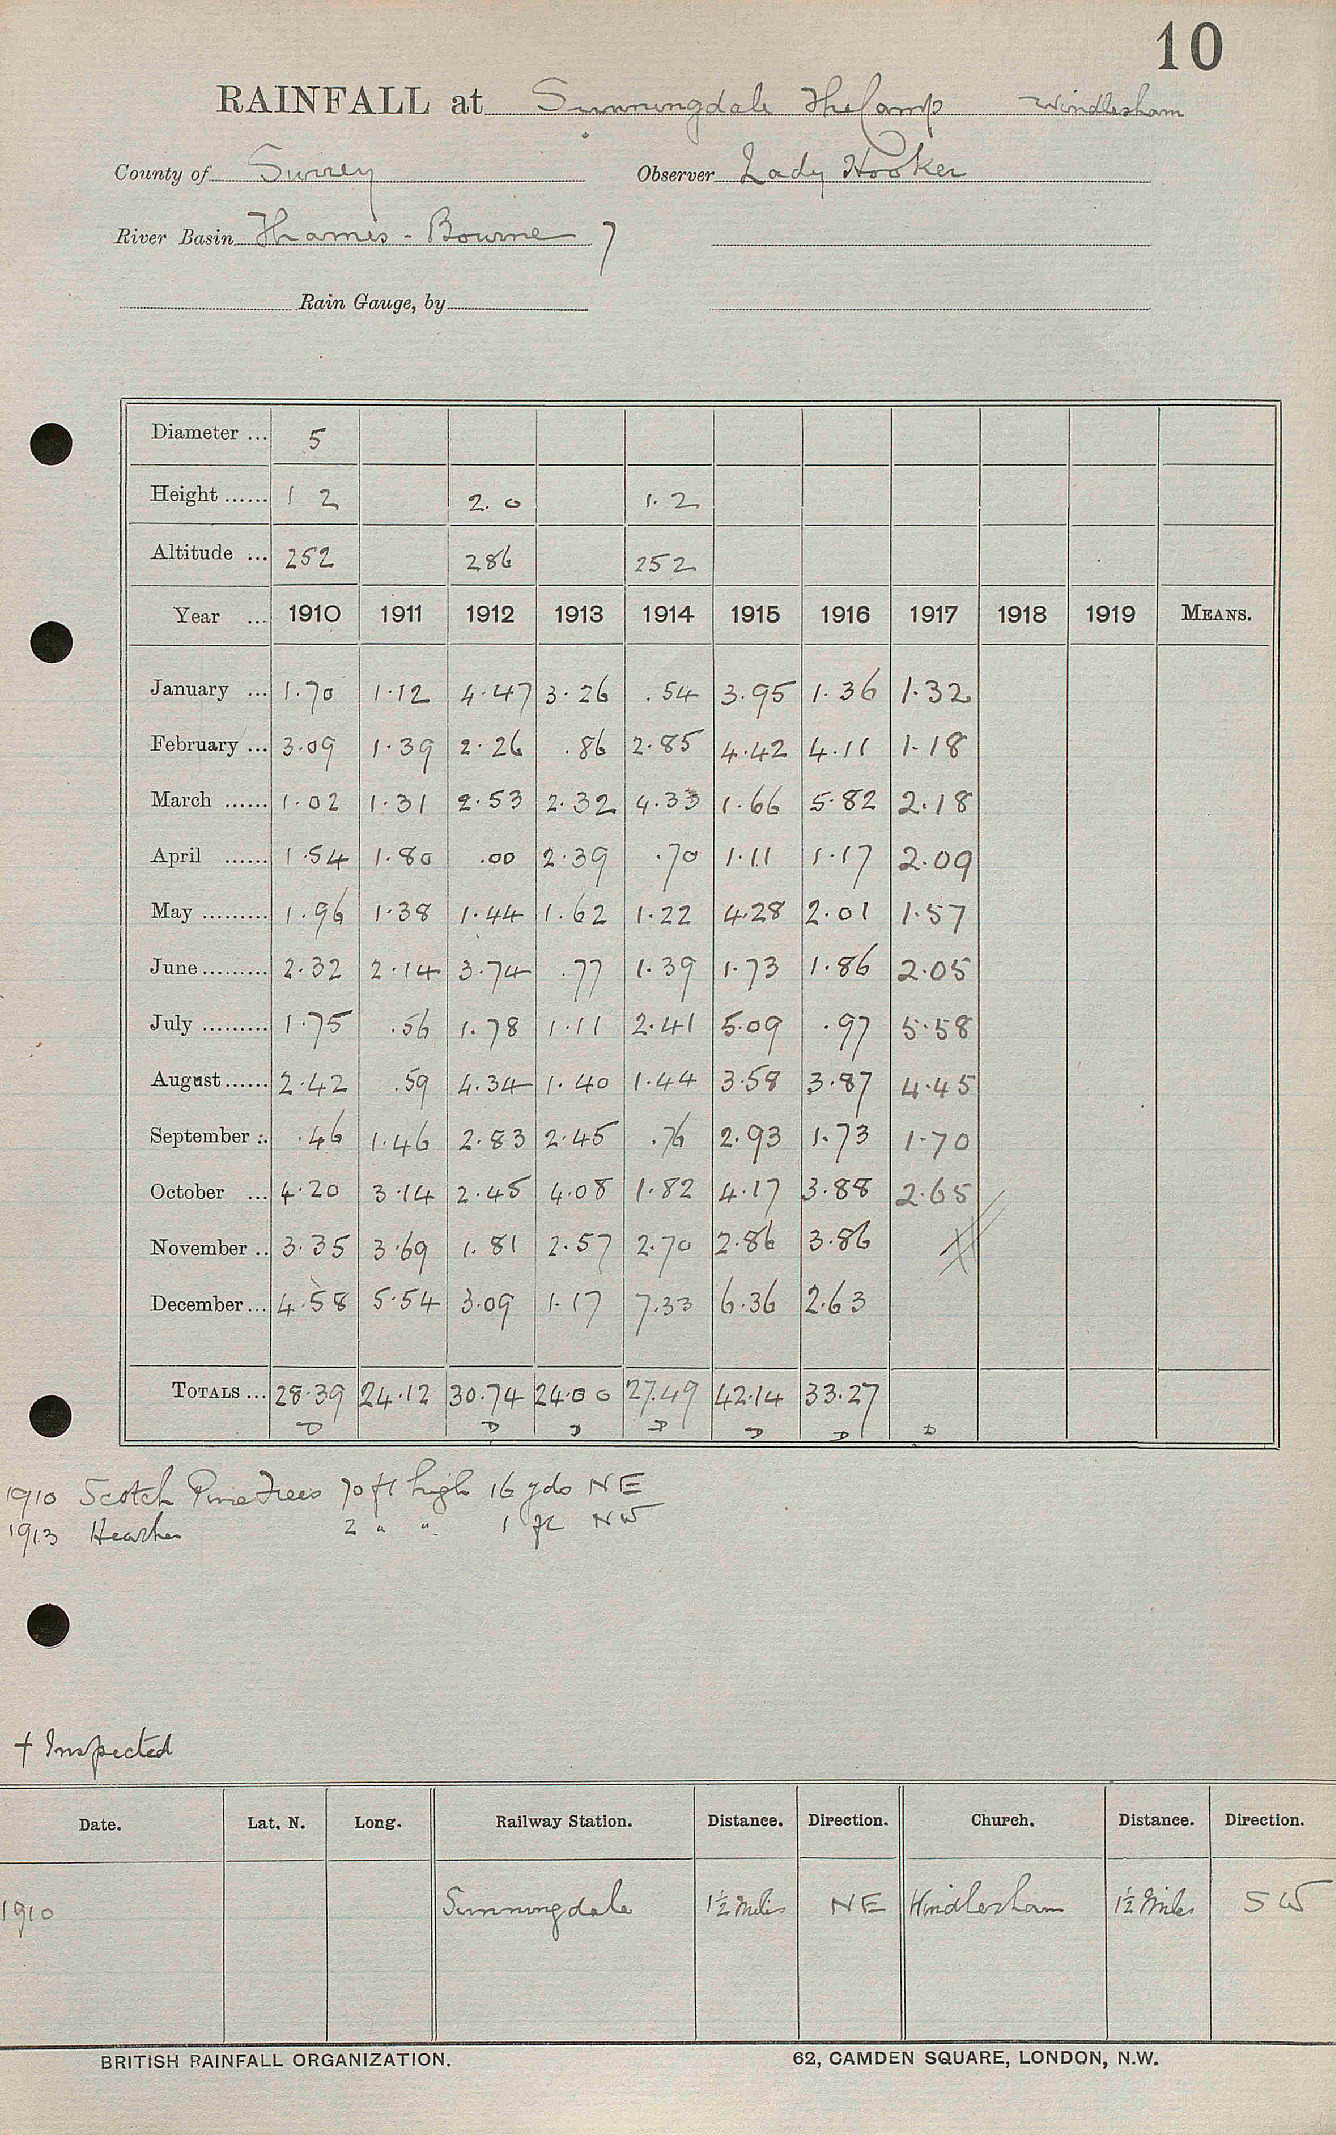 10
RAINFALL at Sunningdale The Camp Windlesham
County of Surrey Observer Lady Hooker
River Basin Thames - Bourne 7
Rain Gauge, by
Diameter ... 5
Height ...... 1 2 2.0 1.2
Altitude ... 252 286 252
Year ... 1910 1911 1912 1913 1914 1915 1916 1917 1918 1919 MEANS.
January ... 1.70 1.12 4.47 3.26 .54 3.95 1.36 1.32
February ... 3.09 1.39 2.26 .86 2.85 4.42 4.11 1.18
March ...... 1.02 1.31 2.53 2.32 4.33 1.66 5.82 2.18
April ...... 1.54 1.80 .00 2.39 .70 1.11 1.17 2.09
May ......... 1.96 1.38 1.44 1.62 1.22 4.28 2.01 1.57
June ......... 2.32 2.14 3.74 .77 1.39 1.73 1.86 2.05
July ......... 1.75 .56 1.78 1.11 2.41 5.09 .97 5.58
August ...... 2.42 .59 4.34 1.40 1.44 3.58 3.87 4.45
September .. .46 1.46 2.83 2.45 .76 2.93 1.73 1.70
October ... 4.20 3.14 2.45 4.08 1.82 4.17 3.88 2.65
November .. 3.35 3.69 1.81 2.57 2.70 2.86 3.86
December ... 4.58 5.54 3.09 1.17 7.33 6.36 2.63
TOTALS ... 28.39 24.12 30.74 24.00 27.49 42.14 33.27
D D D D D D D
1910 Scotch Pine Trees 70 ft high 16 yds NE
1913 Heather 2 " " 1 ft NW
† Inspected
Date. Lat. N. Long. Railway Station. Distance. Direction. Church. Distance. Direction.
1910 Sunningdale 1½ Miles NE Windlesham 1½ Miles SW
BRITISH RAINFALL ORGANIZATION. 62, CAMDEN SQUARE, LONDON, N.W.